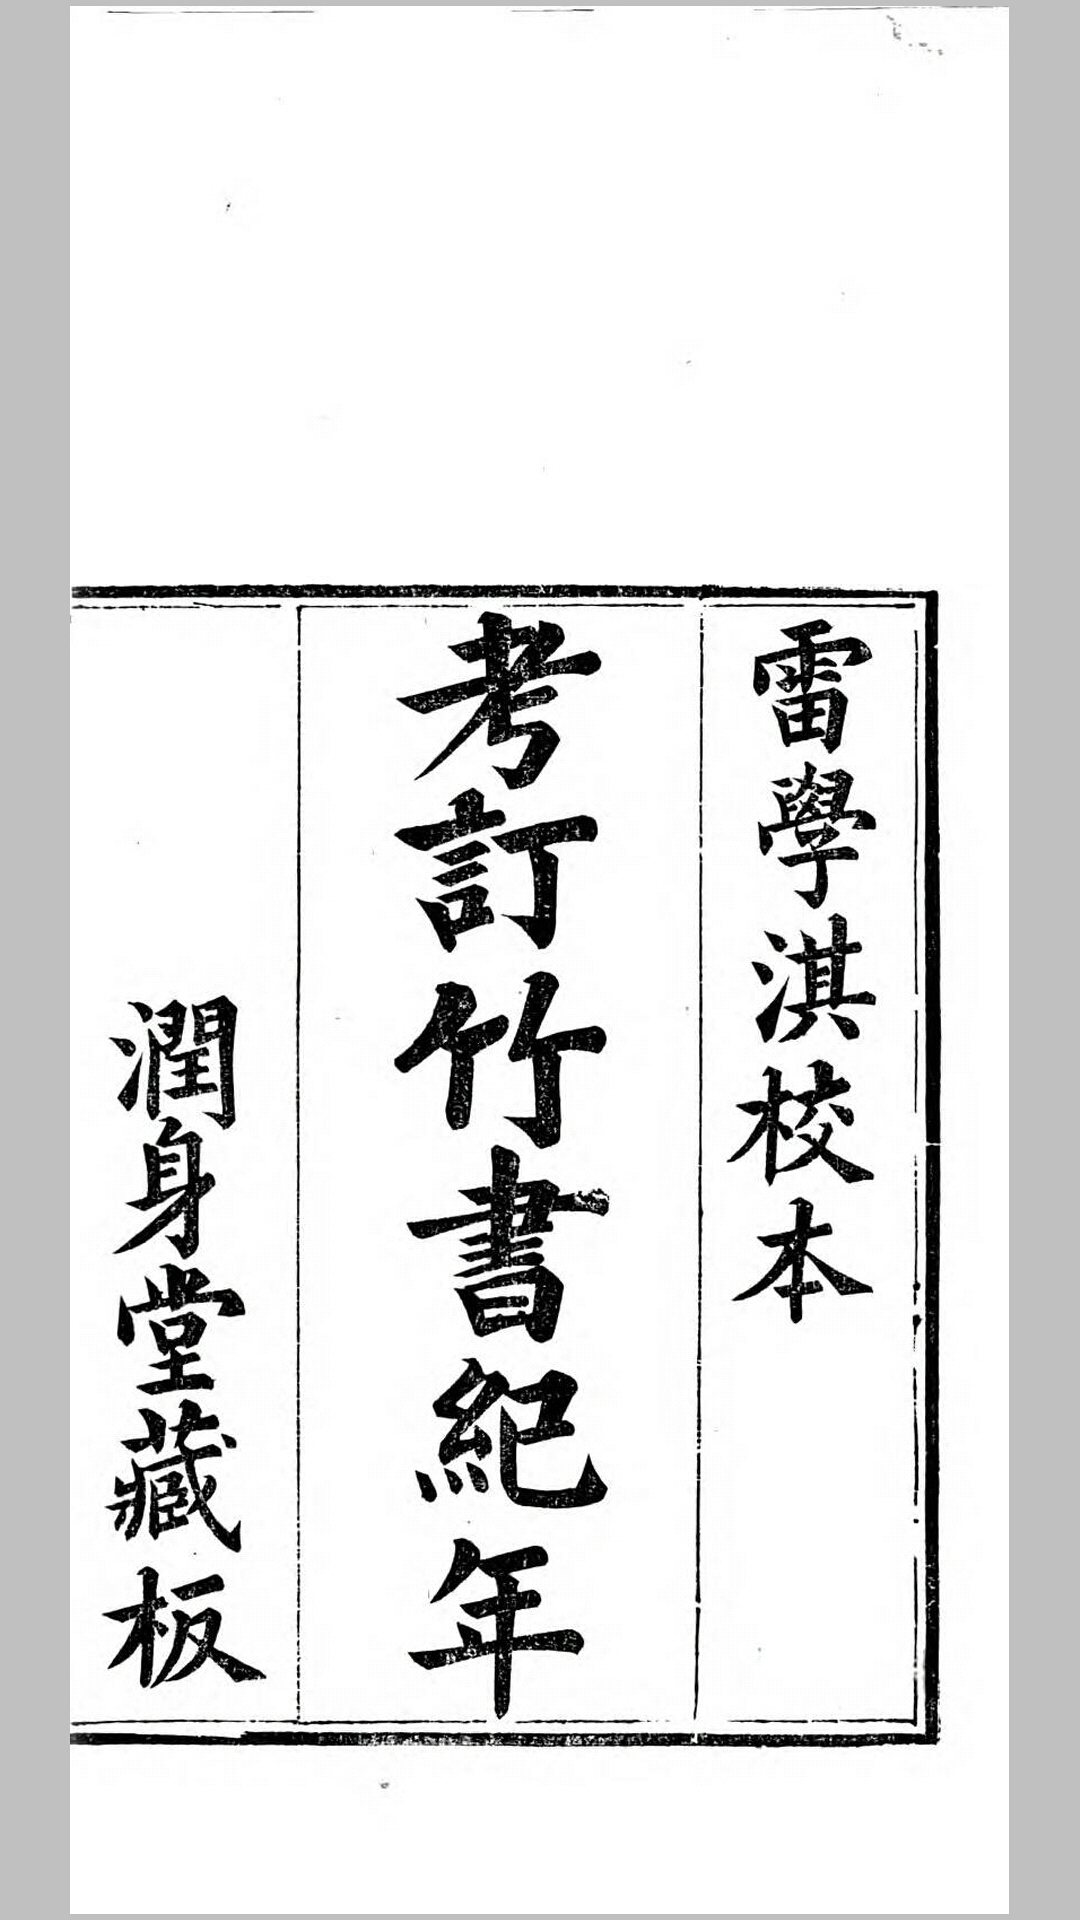 雷學淇校本
考訂竹書紀年
潤身堂藏板